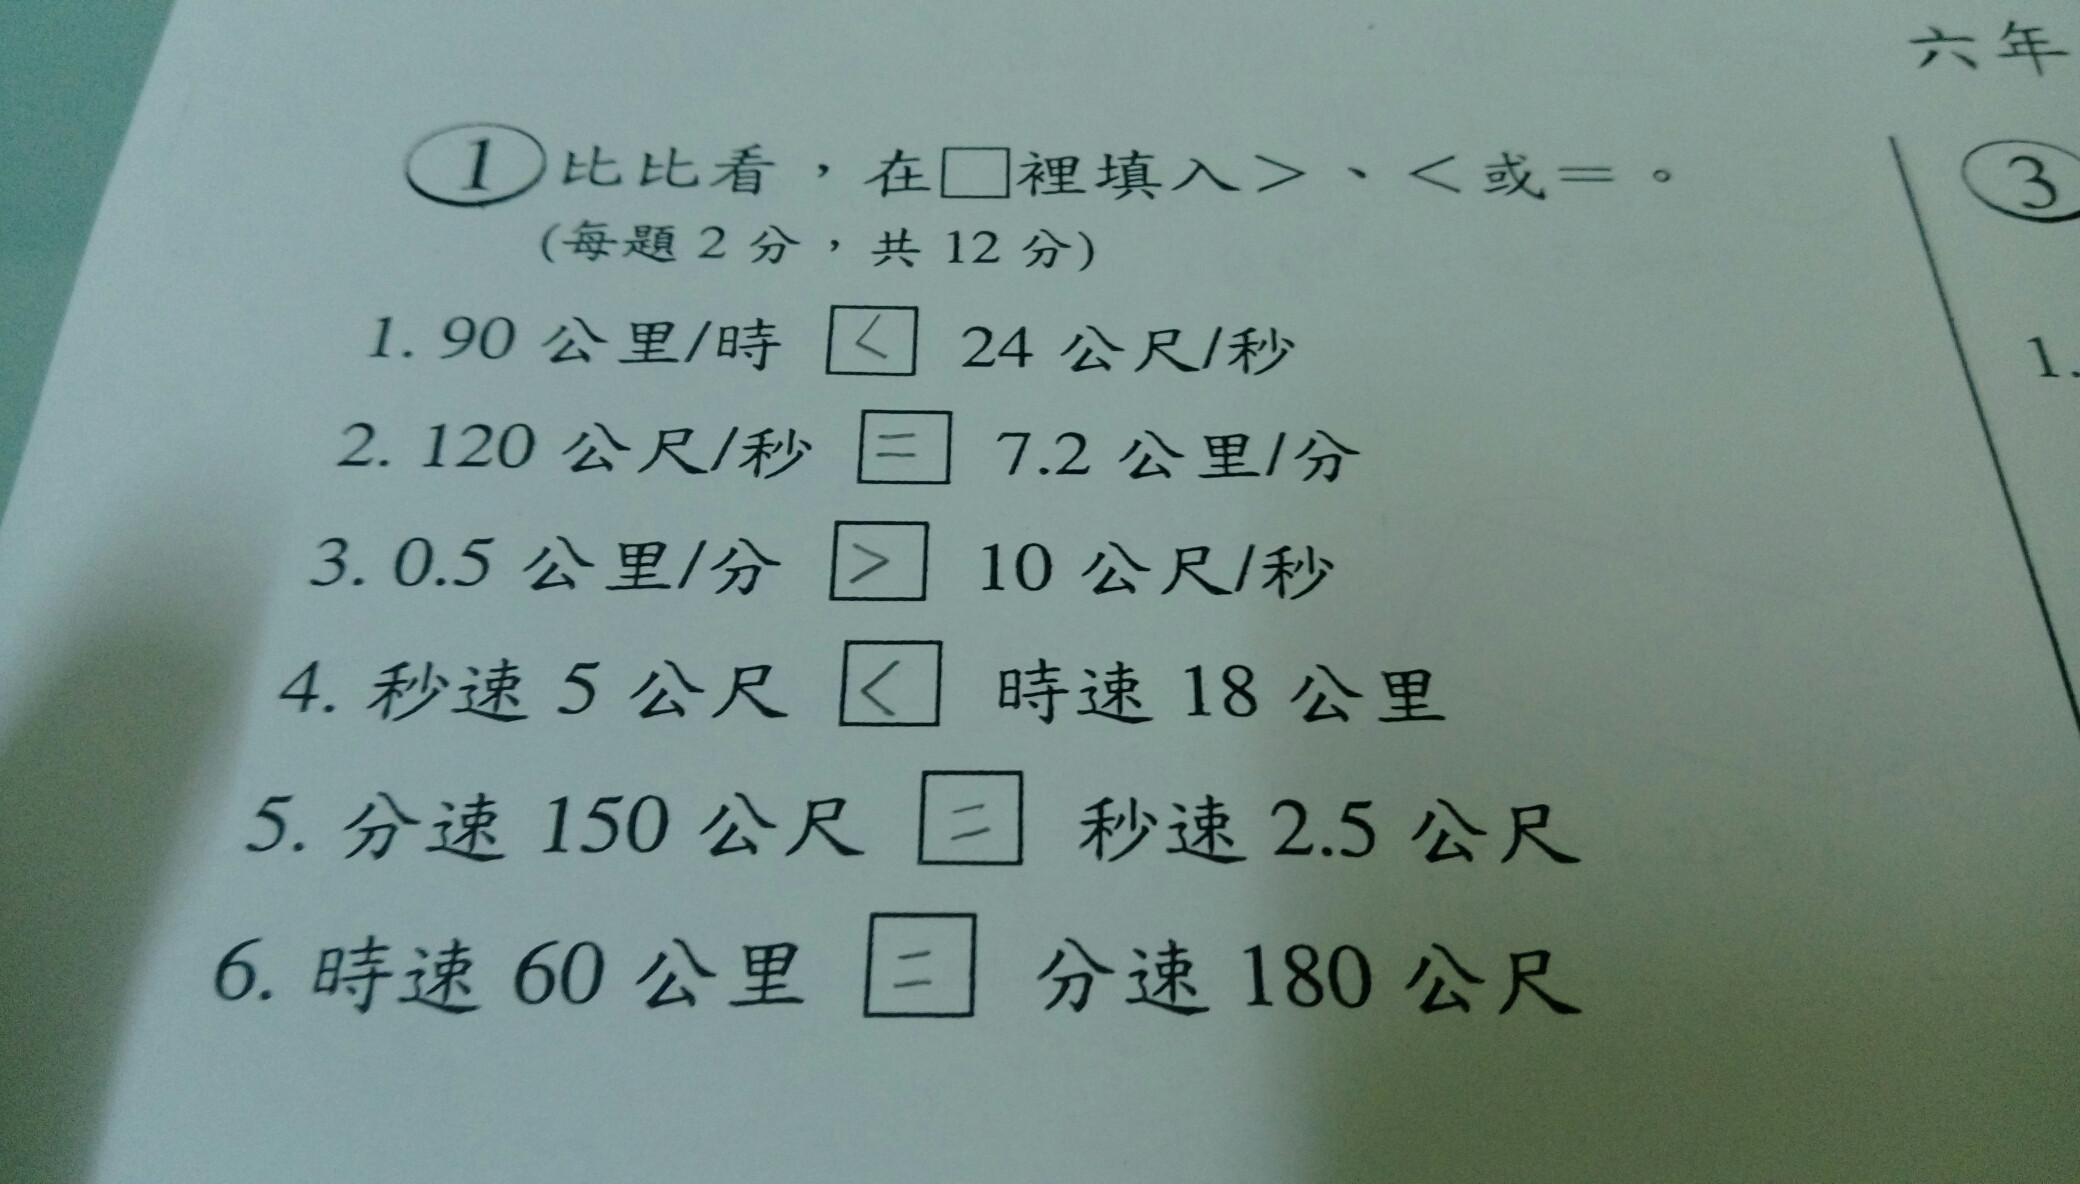 六年
①比比看，在□裡填入＞、＜或＝。
(每題 2 分，共 12 分)
1. 90 公里/時 < 24 公尺/秒
2. 120 公尺/秒 = 7.2 公里/分
3. 0.5 公里/分 > 10 公尺/秒
4. 秒速 5 公尺 < 時速 18 公里
5. 分速 150 公尺 = 秒速 2.5 公尺
6. 時速 60 公里 = 分速 180 公尺
③
1.